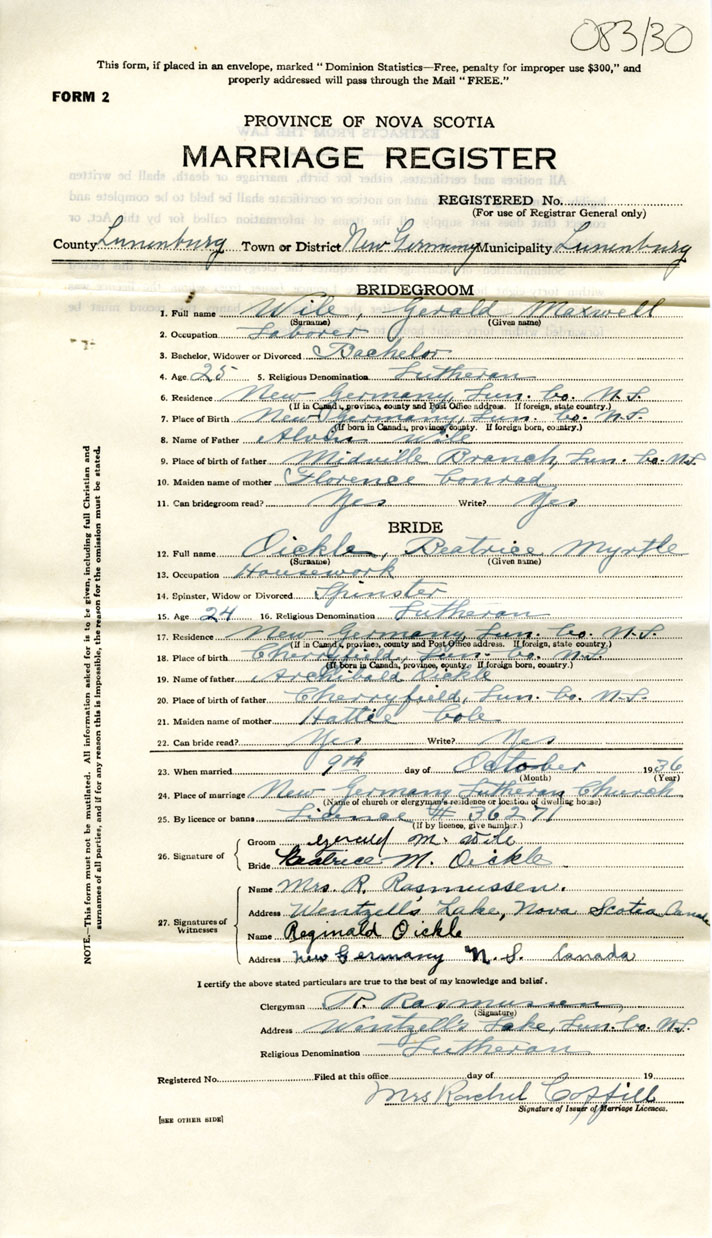 083/30
This form, if placed in an envelope, marked “ Dominion Statistics—Free, penalty for improper use $300,” and
properly addressed will pass through the Mail “ FREE.”
FORM 2
PROVINCE OF NOVA SCOTIA
MARRIAGE REGISTER
REGISTERED No.
(For use of Registrar General only)
County Lunenburg Town or District New Germany Municipality Lunenburg
BRIDEGROOM
1. Full name Wile, Gerald Maxwell
(Surname) (Given name)
2. Occupation Laborer
3. Bachelor, Widower or Divorced Bachelor
4. Age 25 5. Religious Denomination Lutheran
6. Residence New Germany, Lun. Co. N.S.
(If in Canada, province, county and Post Office address. If foreign, state country.)
7. Place of Birth New Germany, Lun. Co. N.S.
(If born in Canada, province, county. If foreign born, country.)
8. Name of Father Alvin Wile
9. Place of birth of father Midville Branch, Lun. Co. N.S.
10. Maiden name of mother Florence Conrad
11. Can bridegroom read? Yes Write? Yes
BRIDE
12. Full name Oickle, Beatrice Myrtle
(Surname) (Given name)
13. Occupation Housework
14. Spinster, Widow or Divorced Spinster
15. Age 24 16. Religious Denomination Lutheran
17. Residence New Germany, Lun. Co. N.S.
(If in Canada, province, county and Post Office address. If foreign, state country.)
18. Place of birth Cherryfield, Lun. Co. N.S.
(If born in Canada, province, county. If foreign born, country.)
19. Name of father Archibald Oickle
20. Place of birth of father Cherryfield, Lun. Co. N.S.
21. Maiden name of mother Hattie Cole
22. Can bride read? Yes Write? Yes
23. When married 9th day of October 1936
(Month) (Year)
24. Place of marriage New Germany Lutheran Church
(Name of church or clergyman's residence or location of dwelling house)
25. By licence or banns Licence # 36271
(If by licence, give number.)
26. Signature of
Groom Gerald M. Wile
Bride Beatrice M. Oickle
27. Signatures of Witnesses
Name Mrs. R. Rasmussen.
Address Wentzell's Lake, Nova Scotia Canada
Name Reginald Oickle
Address New Germany N.S. Canada
I certify the above stated particulars are true to the best of my knowledge and belief.
Clergyman R. Rasmussen,
(Signature)
Address Wentzell's Lake, Lun. Co. N.S.
Religious Denomination Lutheran
Registered No. Filed at this office day of 19
Mrs Rachel Coffill
Signature of Issuer of Marriage Licences.
[SEE OTHER SIDE]
NOTE.—This form must not be mutilated. All information asked for is to be given, including full Christian and
surnames of all parties, and if for any reason this is impossible, the reason for the omission must be stated.